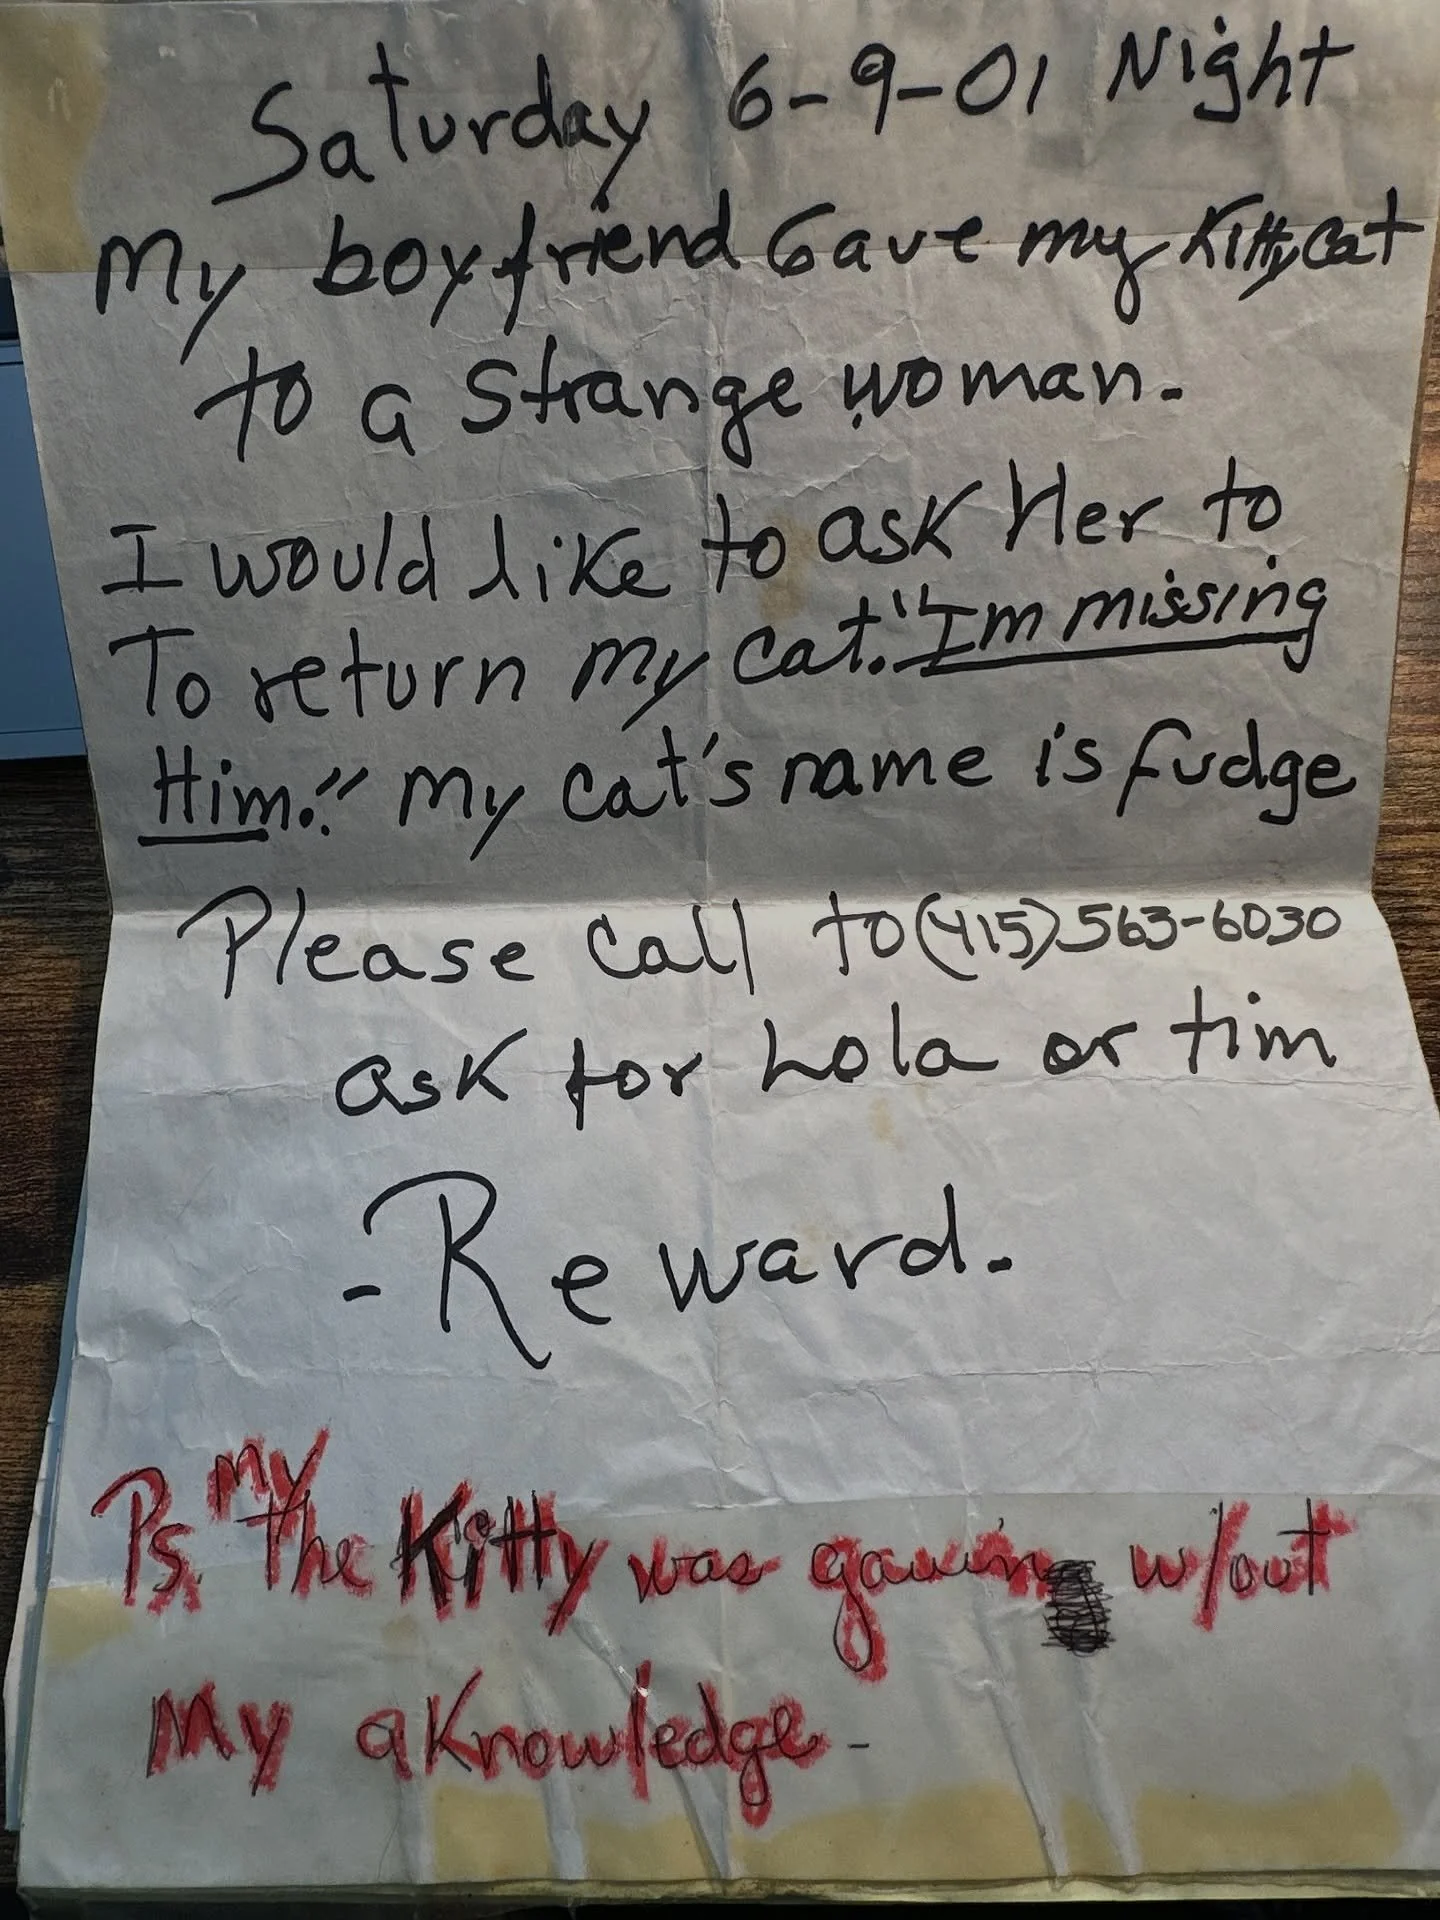 Saturday 6-9-01 Night
My boyfriend Gave my Kitty cat
to a Strange woman.
I would like to ask Her to
To return my cat. "I'm missing
Him." My cat's name is fudge
Please call to (415) 563-6030
ask for Lola or tim
- Reward.
My
Ps. the Kitty was gauin w/out
My aknowledge -